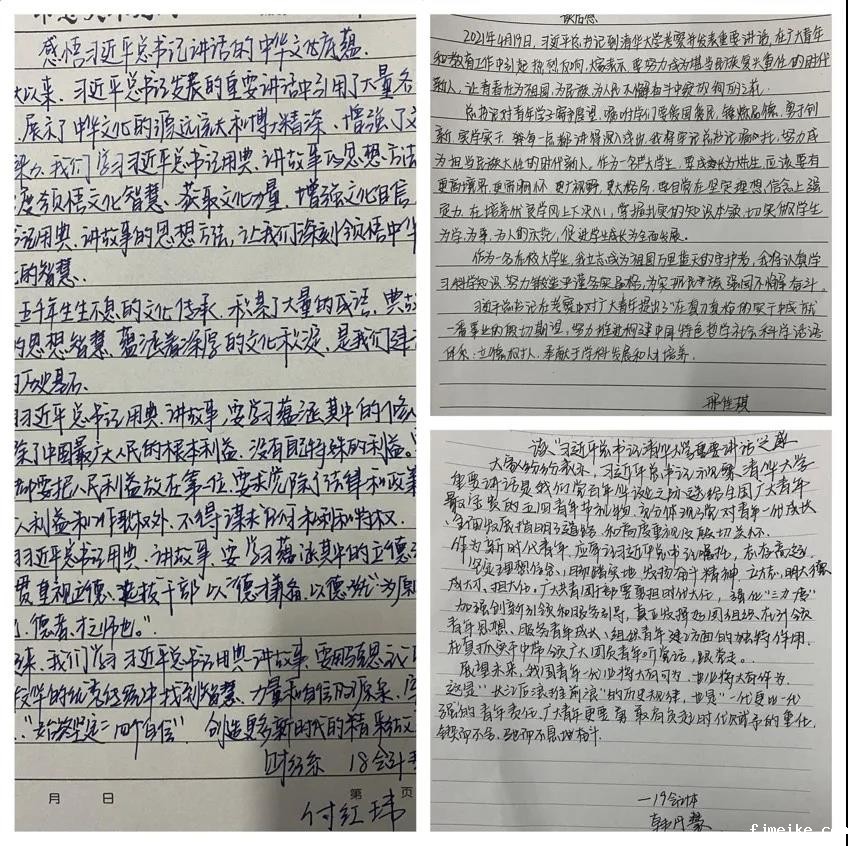 感悟习近平总书记讲话的中华文化底蕴
大以来，习近平总书记发展的重要讲话中引用了大量各
展示了中华文化的源远流长和博大精深，增强了文
我们学习习近平总书记用典、讲故事的思想方法
度领悟文化智慧、获取文化力量，增强文化自信
书记用典、讲故事的思想方法，让我们深刻领悟中华
的智慧。
五千年生生不息的文化传承，积累了大量的成语，典故
的思想智慧，蕴涵着深厚的文化积淀，是我们
的历史基石。
习近平总书记用典、讲故事，要学习蕴涵其中的
除了中国最广大人民的根本利益，没有自己特殊的利益。
都要把人民利益放在第一位，要求党除了法律和政策
人利益和工作职权外，不得谋求任何私利和特权
习近平总书记用典、讲故事，要学习蕴涵其中的立德
贯重视立德、选拔干部以“德才兼备，以德为先”为原则
德者，才之帅也。”
我们学习习近平总书记用典、讲故事，要用
的优秀经验中找到智慧、力量和自信的源泉，
“四个自信”，创造更多新时代的精彩故
财经系 18会计
月 日 第 页
付红玮
读后感
2021年4月19日，习近平总书记到清华大学考察并发表重要讲话，在广大青年
和教育工作中引起热烈反响，大家表示，要努力成为堪当民族复兴重任的时代
新人，让青春在为祖国、为民族、为人民不懈奋斗中绽放绚丽之花。
总书记对青年学子寄予厚望，嘱咐学们要爱国爱民，锤炼品德，勇于创
新，实学实干，每一点都讲得深入浅出，我将牢记总书记嘱托，努力成
为担当民族大任的时代新人。作为一名大学生，应该要有
更高境界、更宽胸怀、更广视野、更大格局，要自觉在坚定理想、信念上强
定力，在培养优良学风上下决心，掌握扎实的知识本领，切实做学生
为学、为事、为人的示范，促进学生成长为全面发展。
作为一名在校大学生，我立志成为祖国万里蓝天的守护者，我将认真学
习科学知识，努力锻造严谨务实品格，为实现民族强国不懈奋斗。
习近平总书记在考察中对广大青年提出了“在复习复检的实干中成就
一番事业的殷切期望，努力推进构建中国特色哲学社会科学话语
体系，立德树人，奉献于学科发展和人才培养。
邢佳琪
读“习近平总书记清华大学重要讲话”之感
大家纷纷表示，习近平总书记视察清华大学
重要讲话是我们党百年华诞之际送给全国广大青年
最宝贵的五四青年节礼物，充分体现了党对青年一代成长
全面发展指明了道路，和高度重视及殷切关怀。
作为新时代青年，应牢记习近平总书记嘱托，志存高远
坚定理想信念，脚踏实地，发扬奋斗精神，立大志、明大德
成大才、担大任，广大共青团干部要勇担时代大任，强化“三力一度”
加强创新引领和服务引导，真正发挥好团组织在引领
青年思想、服务青年成长、组织青年建功方面的独特作用，
在真抓实干中带领广大团员青年听党话、跟党走。
展望未来，我国青年一代必将大有可为，也必将大有作为。
这是“长江后浪推前浪”的历史规律，也是“一代更比一代
强”的青年责任，广大青年更要勇敢肩负起时代赋予的重任，
锲而不舍、驰而不息地奋斗。
一19会计本
韩丹慧
fjmeike.com